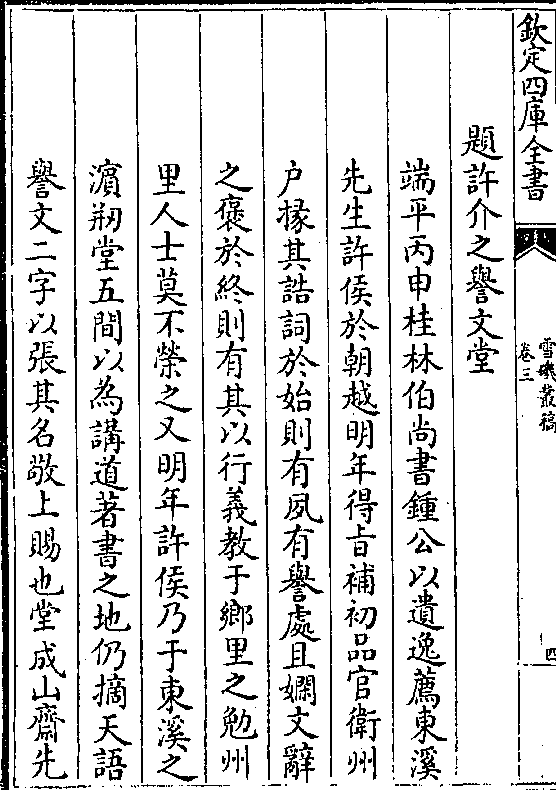 欽定四庫全書
雪磯叢稿
卷三
四
題許介之譽文堂
端平丙申桂林伯尚書鍾公以遺逸薦東溪
先生許侯於朝越明年得旨補初品官衛州
户掾其誥詞於始則有夙有譽處且嫻文辭
之褒於終則有其以行義教于鄉里之勉州
里人士莫不榮之又明年許侯乃于東溪之
濵剏堂五間以為講道著書之地仍摘天語
譽文二字以張其名敬上賜也堂成山齋先